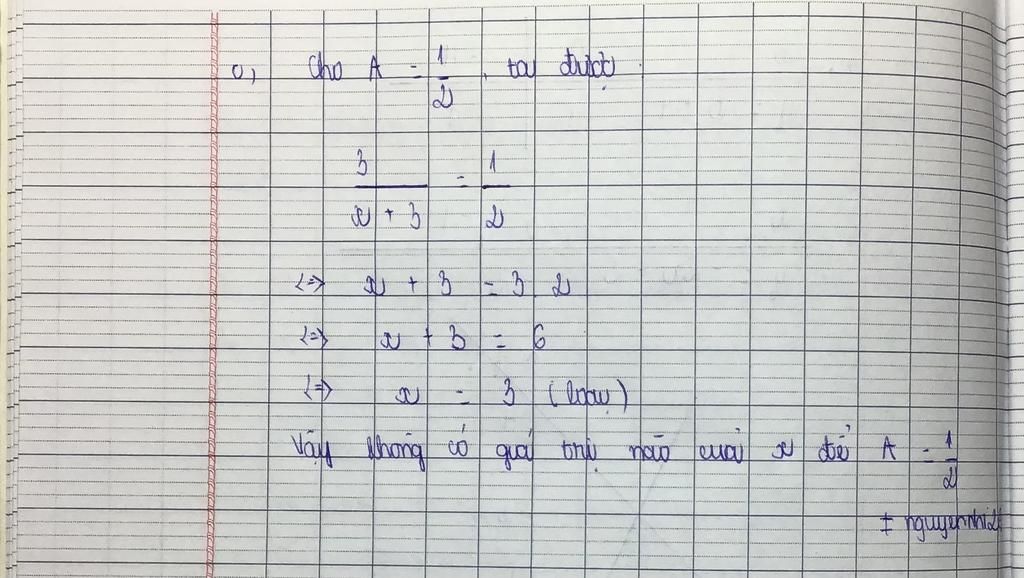 c, Cho A = 1/2, ta được
3/(x + 3) = 1/2
<=> x + 3 = 3.2
<=> x + 3 = 6
<=> x = 3 (loại)
Vậy không có giá trị nào của x để A = 1/2